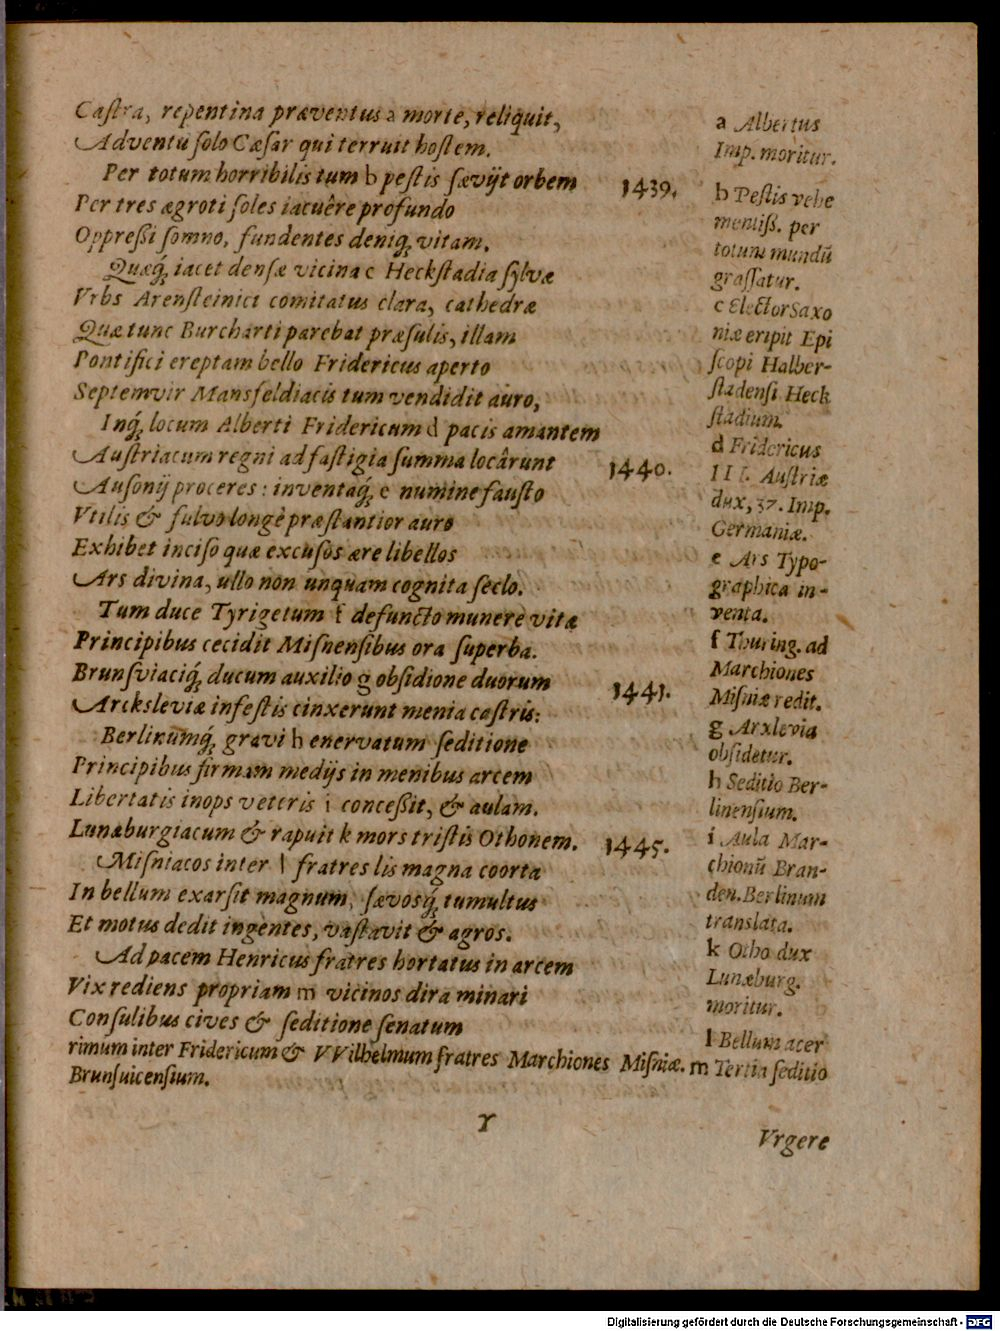 Caſtra, repentina præventus a morte, reliquit,
Adventu ſolo Cæſar qui terruit hoſtem.
Per totum horribilis tum b peſtis ſævijt orbem
Per tres ægroti ſoles iacuêre profundo
Oppreßi ſomno, fundentes deniq́; vitam.
Quæq́; iacet denſæ vicina c Heckſtadia ſylvæ
Vrbs Arenſteinici comitatus clara, cathedræ
Quæ tunc Burcharti parebat præſulis, illam
Pontifici ereptam bello Fridericus aperto
Septemvir Mansfeldiacis tum vendidit auro,
Inq́; locum Alberti Fridericum d pacis amantem
Auſtriacum regni ad faſtigia ſumma locârunt
Auſonij proceres: inventaq́; e numine fauſto
Vtilis & fulvo longè præſtantior auro
Exhibet inciſo quæ excuſos ære libellos
Ars divina, ullo non unquam cognita ſeclo.
Tum duce Tyrigetum f defuncto munere vitæ
Principibus cecidit Miſnenſibus ora ſuperba.
Brunſviaciq́; ducum auxilio g obſidione duorum
Arcksleviæ infeſtis cinxerunt menia caſtris:
Berlinumq́; gravi h enervatum ſeditione
Principibus firmam medijs in menibus arcem
Libertatis inops veteris i conceßit, & aulam.
Lunæburgiacum & rapuit k mors triſtis Othonem.
Miſniacos inter l fratres lis magna coorta
In bellum exarſit magnum, ſævosq́; tumultus
Et motus dedit ingentes, vaſtavit & agros.
Ad pacem Henricus fratres hortatus in arcem
Vix rediens propriam m vicinos dira minari
Conſulibus cives & ſeditione ſenatum
1439.
1440.
1441.
1445.
a Albertus
Imp. moritur.
b Peſtis vehe
mentiß. per
totum mundũ
graſſatur.
c Elector Saxo
niæ eripit Epi
ſcopi Halber-
ſtadenſi Heck
ſtadium.
d Fridericus
III. Auſtriæ
dux, 37. Imp.
Germaniæ.
e Ars Typo-
graphica in-
venta.
f Thuring. ad
Marchiones
Miſniæ redit.
g Arxlevia
obſidetur.
h Seditio Ber-
linenſium.
i Aula Mar-
chionũ Bran-
den. Berlinum
translata.
k Otho dux
Lunæburg.
moritur.
l Bellum acer
rimum inter Fridericum & VVilhelmum fratres Marchiones Miſniæ. m Tertia ſeditio
Brunſuicenſium.
Y
Vrgere
Digitalisierung gefördert durch die Deutsche Forschungsgemeinschaft - DFG